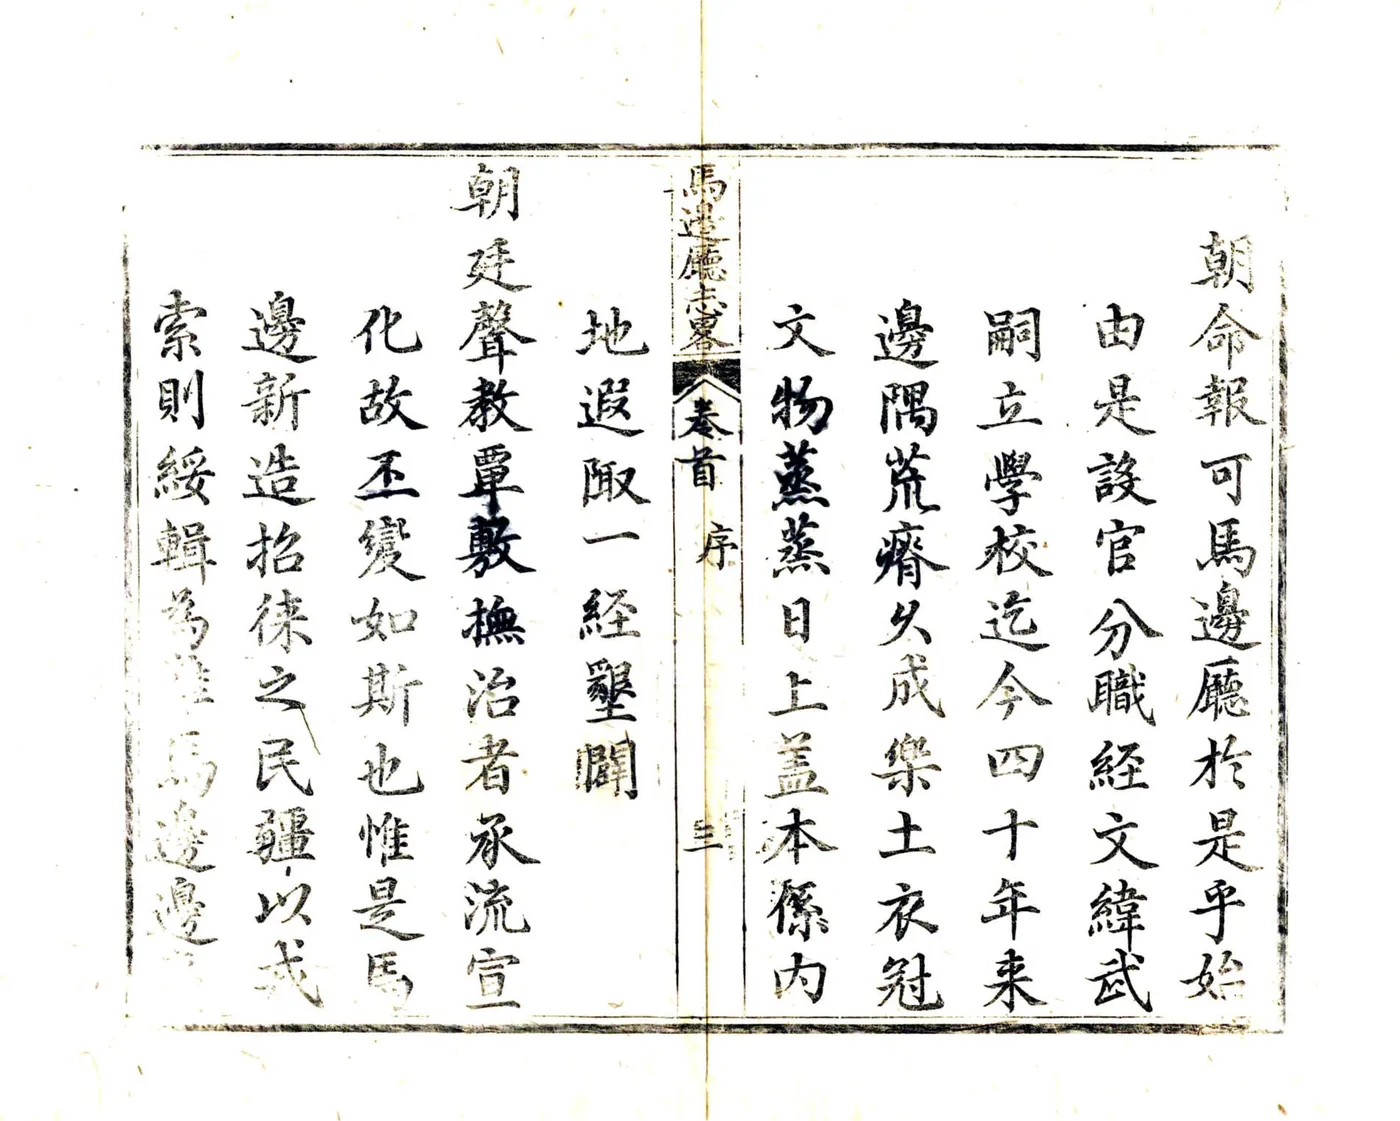 朝命報可馬邊廳於是乎始
由是設官分職経文緯武
嗣立學校迄今四十年来
邊隅荒瘠乆成樂土衣冠
文物蒸蒸日上盖本係内
馬邊廳志畧
卷首
序
三
地遐陬一経墾闢
朝廷聲教覃敷撫治者承流宣
化故丕變如斯也惟是馬
邊新造招徠之民疆以戎
索則綏輯為難馬邊邊